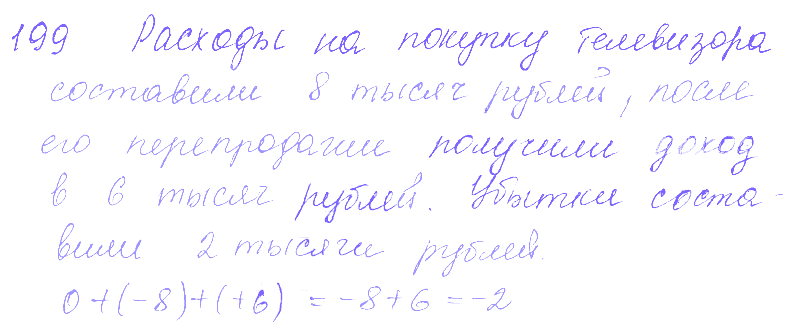 199 Расходы на покупку телевизора
составили 8 тысяч рублей, после
его перепродажи получили доход
в 6 тысяч рублей. Убытки соста-
вили 2 тысячи рублей.
0+(-8)+(+6) = -8+6=-2